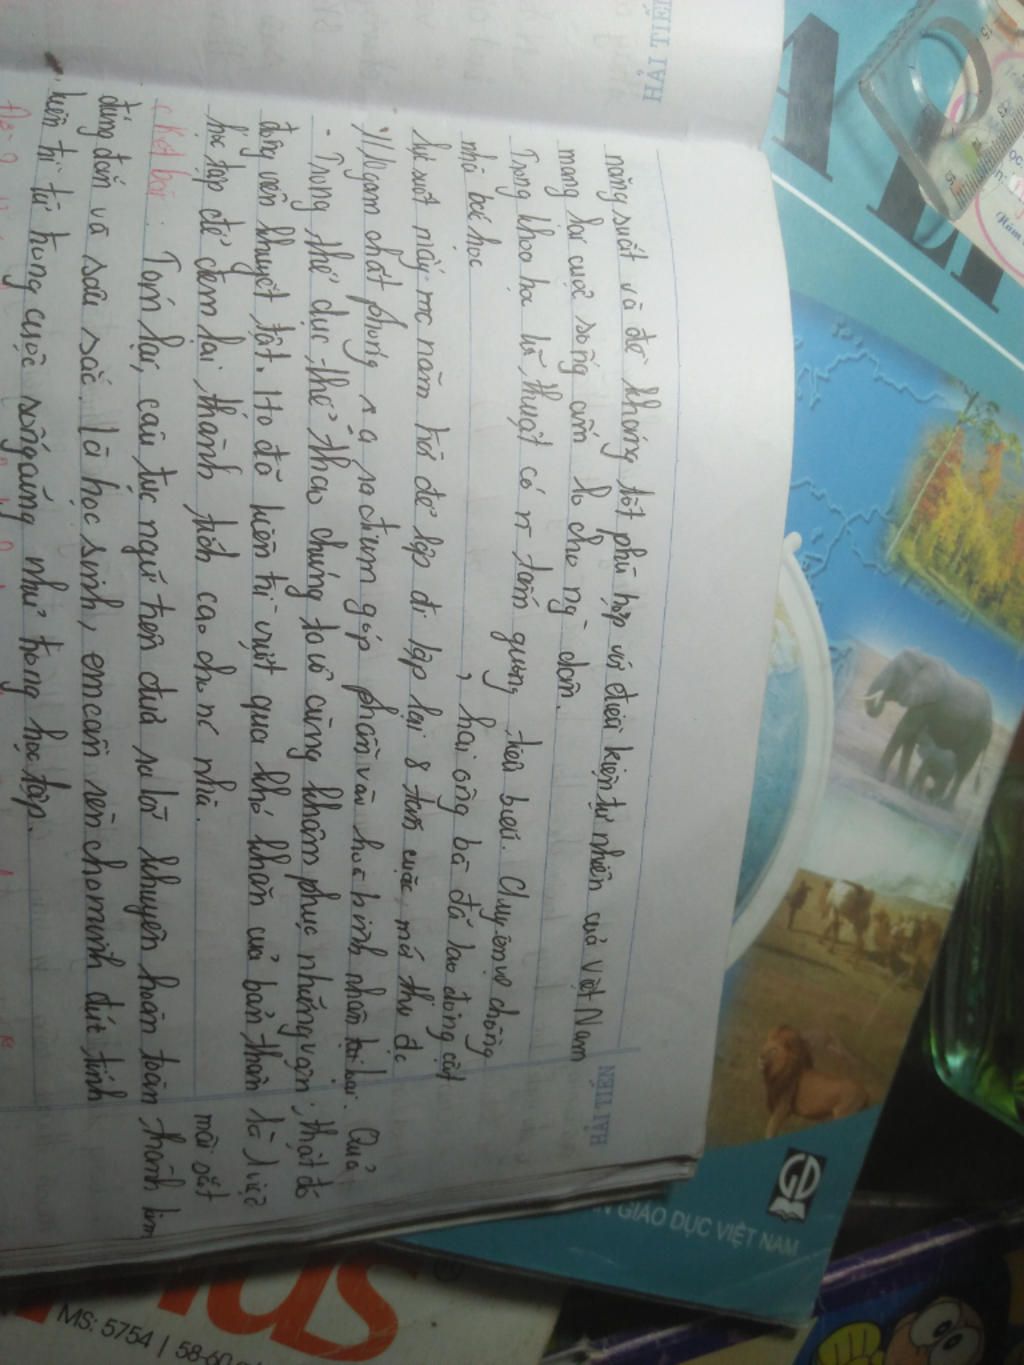 HẢI TIẾN
HẢI TIẾN
năng suất và đề kháng tốt phù hợp với điều kiện tự nhiên của việt Nam
mang lại cuộc sống ấm no cho ng dân.
Trong khoa học kĩ thuật có n tấm gương tiêu biểu. Chuyện vợ chồng
nhà bác học , hai ông bà đã lao động cật
lực suốt mấy mc năm trời để lập đi lập lại 8 tấn cuốc mới thu đc
1/1 ngam chất phóng x ạ ra đium góp phần vào hoà bình nhân loại. Quả
- Trong thể dục, thể thao chúng ta vô cùng khâm phục những vận
động viên khuyết tật. Họ đã kiên trì vượt qua khó khăn của bản thân là 1 việc
học tập để đem lại thành tích cao cho nc nhà.
thật đó
mài sắt
c, Kết bài : Tóm lại, câu tục ngữ trên đưa ra lời khuyên hoàn toàn thành kim
đúng đắn và sâu sắc. là học sinh, em cần rèn cho mình đức tính
kiên trì từ trong cuộc sống cũng như trong học tập.
GIÁO DỤC VIỆT NAM
MS: 5754 | 58-60